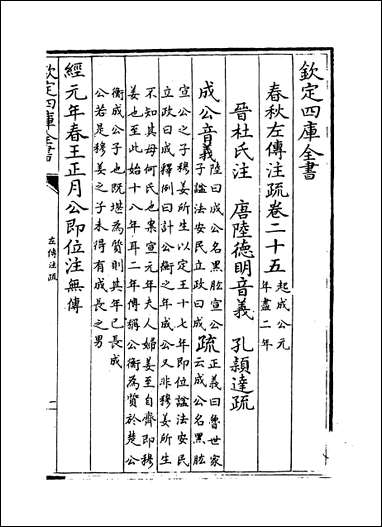 欽定四庫全書
春秋左傳注疏卷二十五 起成公元
年盡二年
晉杜氏注 唐陸德明音義 孔穎達疏
成公音義 陸曰成公名黑肱宣公
子謚法安民立政曰成 疏 正義曰魯世家
云成公名黑肱
宣公之子穆姜所生以定王十七年即位諡法安民
立政曰成釋例曰計公衡之年成公又非穆姜所生
不知其母何氏也案宣元年夫人婦姜至自齊即穆
姜也至此始十八年耳二年傳稱公衡為質於楚公
衡成公子也既堪為質則其年已長成
公若是穆姜之子未得有成長之男
經元年春王正月公即位注無傳
欽定四庫全書
左傳注疏